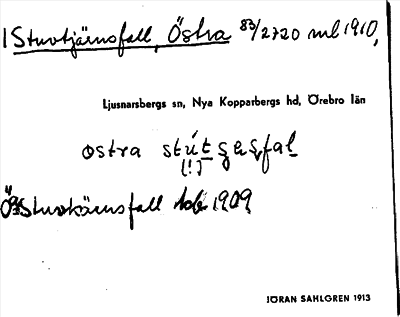 1 Stuvtjärnsfall, Östra 83/2720 ml 1910,
Ljusnarsbergs sn, Nya Kopparbergs hd, Örebro län
ostra
(!)
Ö. Stuvtärnsfall 1909
JÖRAN SAHLGREN 1913